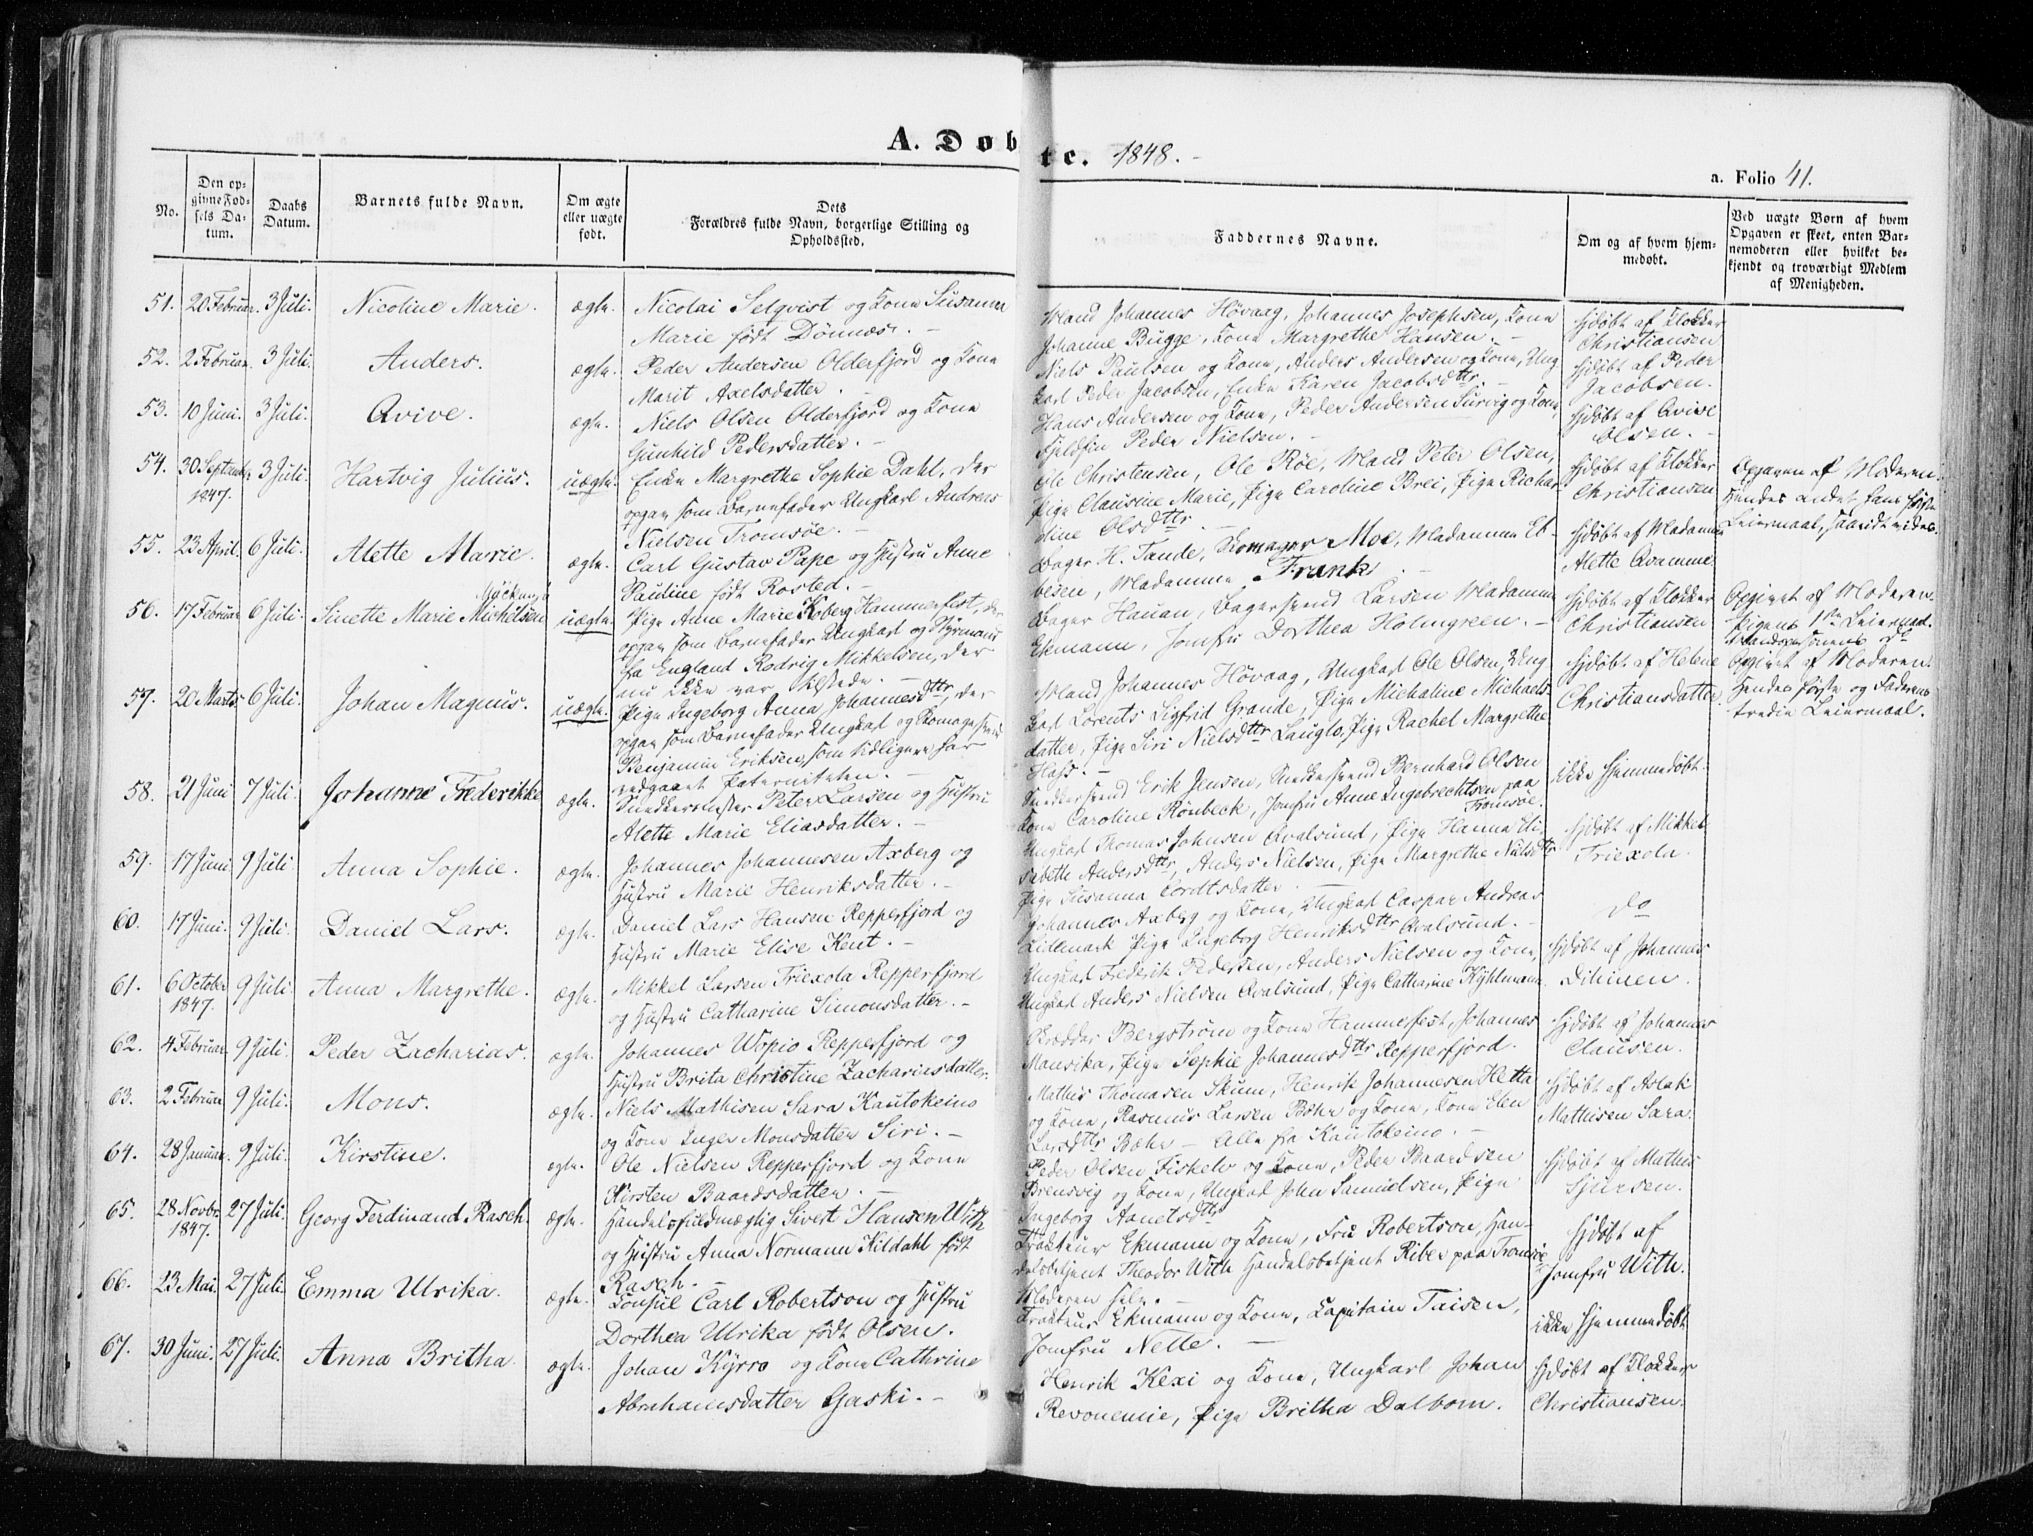 A. Døbte. 1848.
a. Folio 41.
No.
Den opgivne Fødsels Datum.
Daabs Datum.
Barnets fulde Navn.
Om ægte eller uægte født.
Dets Forældres fulde Navn, borgerlige Stilling og Opholdssted.
Faddernes Navne.
Om og af hvem hjemmedøbt.
Ved uægte Børn af hvem Opgaven er skeet, enten Barnemoderen eller hvilket bekjendt og troværdigt Medlem af Menigheden.
51. 20 Februar. 3 Juli. Nicoline Marie. ægte.
Nicolai Selqvist og Kone Susanna
Marie født Dönnes. -
Mand Johannes Høvaag, Johannes Josephsen, Kone
Johanne Bugge, Kone Margrethe Hansen. -
hjdøbt af Klokker
Christiansen
52. 2 Februar. 3 Juli. Anders. ægte.
Peder Andersen Olderfjord og Kone
Marit Axelsdatter.
Niels Paulsen og Kone, Anders Andersen og Kone, Ung
karl Peder Jacobsen, Enke Karen Jacobsdttr. -
hjdøbt af Peder
Jacobsen.
53. 10 Juni. 3 Juli. Avive. ægte.
Niels Olsen Olderfjord og Kone
Gunhild Pedersdatter. -
Hans Andersen og Kone, Peder Andersen Survig og Kone,
Fjeldfin Peder Nielsen. -
hjdøbt af Avive
Olsen. -
54. 30 Septembr 1847. 3 Juli. Hartvig Julius. uægte.
Enke Margrethe Sophie Dahl, der
opgav som Barnefader Ungkarl Andreas
Nielsen Tromsøe. -
Ole Christensen, Ole Röe, Mand Peter Olsen,
Pige Clausine Marie, Pige Caroline Brei, Pige Richar-
dine Olsdttr. -
hjdøbt af Klokker
Christiansen
Opgaven af Moderen.
Hendes andet, hans første
Leiermaal, saavidt vides.
55. 23 April. 6 Juli. Alette Marie. ægte.
Carl Gustav Pape og Hustru Anne
Pauline født Rosted. -
Bager H. Tande, Skomager Moe, Madamme Eb-
besen, Madamme Frank. -
hjdøbt af Madamme
Alette Qvamme.
56. 17 Februar. 6 Juli. Sinette Marie Michelsen uægte.
Pige Anne Marie Koberg Hammerfest, der
opgav som Barnefader Ungkarl og Styrmand
fra England Rodrig Mikkelsen, der
nu ikke var tilstede. -
Bager Hauan, Bagersvend Larsen Madamme
Ekmann, Jomfru Dorthea Holmgreen. -
hjdøbt af Klokker
Christiansen
Opgivet af Moderen.
Pigens 1ste Leiermaal.
Mandspersonens do
57. 20 Marts. 6 Juli. Johan Magnus. uægte.
Pige Ingeborg Anna Johannesdttr, der
opgav som Barnefader Ungkarl og Skomagersvend
Benjamin Eriksen, som tidligere har
vedgaaet Paterniteten. -
Mand Johannes Høvaag, Ungkarl Ole Olsen, Ung
karl Lorents Sigfrid Grande, Pige Michaline Michaels
datter, Pige Siri Nielsdttr Lauglo, Pige Rachel Margrethe
Hass. -
hjdøbt af Helene
Christiansdatter
Opgivet af Moderen.
Hendes første og Faderens
tredie Leiermaal.
58. 21 Juni 7 Juli. Johanne Frederikke ægte.
Snedkermester Peter Larsen og Hustru
Alette Marie Eliasdatter. -
Snedkersvend Erik Jensen, Snedkersvend Bernhard Olsen
Kone Caroline Rönbeck, Jomfru Anne Ingebrechtsen paa
Tromsøe.
ikke hjemmedøbt.
59. 17 Juni 9 Juli. Anna Sophie. ægte.
Johannes Johannesen Axberg og
Hustru Marie Henriksdatter. -
Ungkarl Thomas Johnsen Qvalsund, Pige Hanna Eli-
sabeth Andersdttr, Anders Nielsen, Pige Margrethe Nielsdttr
Pige Susanna Cordtsdatter. -
hjdøbt af Mikkel
Triexola.
60. 17 Juni. 9 Juli. Daniel Lars. ægte.
Daniel Lars Hansen Repperfjord og
Hustru Marie Elise Kent. -
Johannes Axberg og Kone, Ungkarl Caspar Andreas
Lillemark Pige Ingeborg Henriksdttr Qvalsund. -
do
61. 6 October 1847. 9 Juli. Anna Margrethe. ægte.
Mikkel Larsen Triexola Repperfjord
og Hustru Catharine Simonsdatter. -
Ungkarl Frederik Pedersen, Anders Nielsen og Kone,
Ungkarl Anders Nielsen Qvalsund, Pige Catharine Kyhlmann.
hjdøbt af Johannes
62. 4 Februar. 9 Juli. Peder Zacharias. ægte.
Johannes Wopio Repperfjord og
Hustru Brita Christine Zachariasdatter.
Bergstrøm og Kone Hammerfest, Johannes
Mansika, Pige Sophie Johannesdttr Repperfjord.
hjdøbt af Johannes
Clausen.
63. 2 Februar. 9 Juli. Mons. ægte.
Niels Mathisen Sara Kautokeino
og Kone Inger Monsdatter Siri. -
Mathis Thomasen Skum, Henrik Johannesen Hetta
og Kone, Rasmus Larsen Bæhr og Kone, Kone Elen
Larsdttr Bæhr - Alle fra Kautokeino. -
hjdøbt af Aslak
Mathisen Sara.
64. 28 Januar. 9 Juli. Kirstine. ægte.
Ole Nielsen Repperfjord og Kone
Kirsten Baardsdatter. -
Peder Olsen Fiskelv og Kone, Peder Baardsen
Brensvig og Kone, Ungkarl John Samuelsen, Pige
Ingeborg Aanetsdttr
hjdøbt af Mathis
Sjursen.
65. 28 Novbr. 1847. 27 Juli. Georg Ferdinand Rasch. ægte.
Handelsfuldmægtig Sivert Hansen With
og Hustru Anna Normann Kildahl født
Rasch.
Trakteur Ekmann og Kone, Fru Robertson, Han-
delsbetjent Theodor With Handelsbetjent Riber paa Tromsøe
Moderen selv. -
hjdøbt af
Jomfru With.
66. 23 Mai. 27 Juli. Emma Ulrika. ægte.
Konsul Carl Robertson og Hustru
Dorthea Ulrika født Olsen.
Trakteur Ekmann og Kone, Capitain Taisen,
Jomfru Nette. -
ikke hjemmedøbt
67. 30 Juni. 27 Juli. Anna Britha. ægte.
Johan Kyrro og Kone Cathrine
Abrahamsdatter Gaski. -
Henrik Kexi og Kone, Ungkarl Johan
Revonemie, Pige Britha Dalbom.
hjdøbt af Klokker
Christiansen.